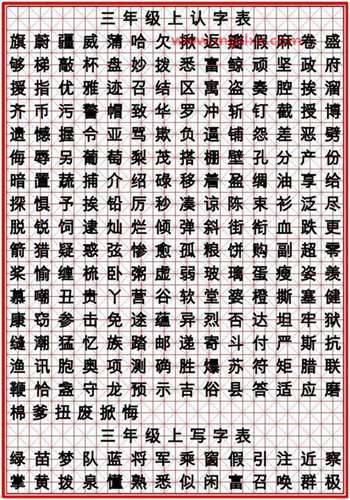 三年级上认字表
旗蔚疆威蒲哈欠返假麻卷盛
够梯敲杯盘妙拨悉富鲸顽坚政府
援指优雅迹召结区寓盗奏腔挨溜
齐币污警帽致华罗冲斩钉截授博
遗憾握令亚骂欺负逼铺怨差恶劈
侮辱另葡萄梨茂搭棚壁孔分产份
暗置蔬捕介绍碌移着盈绸油享给
探惧予挨铅厉秒凑谅陈束衫泛尽
脱锐饲逮灿烂倾弹斜街衔血跌更
箭猎疑惑弦惨愈孤粮饼购副超零
桨愉缠梳卧粥虚弱玻璃蛋瘦姿羡
慕嘲丑贵丫营谷软堂婆橙撕塞健
康窃参击免途蕴异烈否达坦牢狱
缝潮猛忆族踏邮递寄斗付严斯抗
渔讯胞奥项测确胜爆苏符矩腊联
鞭恰盏守龙预示吉俗县答适应磨
棉爹扭废掀悔
三年级上写字表
绿苗梦队蓝将军乘窗假引注近察
掌黄拨泉懂熟悉似闲富召唤群极